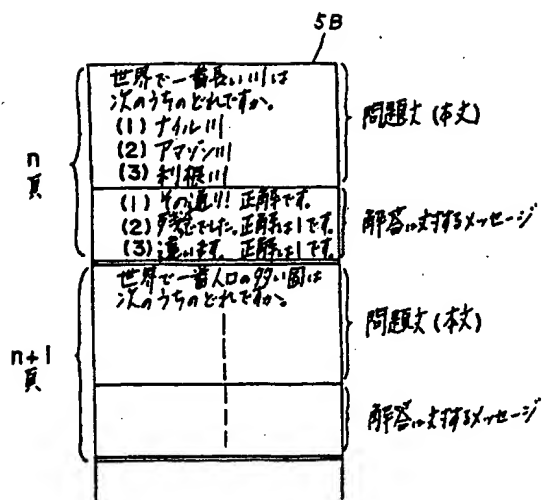 5B
世界で一番長い川は
次のうちのどれですか。
(1) ナイル川
(2) アマゾン川
(3) 利根川
問題文(本文)
n
頁
(1) その通り! 正解です。
(2) 残念でした。正解は1です。
(3) 違います。正解は1です。
解答に対するメッセージ
世界で一番人口の多い国は
次のうちのどれですか。
問題文(本文)
n+1
頁
解答に対するメッセージ